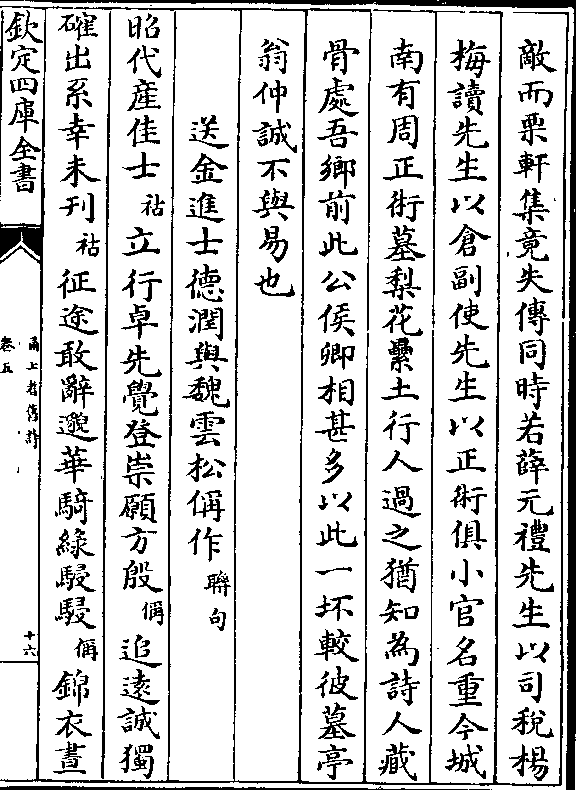 敵而栗軒集竟失傳同時若薛元禮先生以司税楊
梅讀先生以倉副使先生以正術俱小官名重今城
南有周正術墓梨花纍土行人過之猶知為詩人藏
骨處吾鄉前此公侯卿相甚多以此一抔較彼墓亭
翁仲誠不與易也
送金進士德潤與魏雲松偁作聯句
昭代産佳士祜立行卓先覺登崇願方殷偁追遠誠獨
確出系幸未刋祜征途敢辭邈華騎緑駸駸偁錦衣晝
欽定四庫全書
甬上耆舊詩
卷五
十六